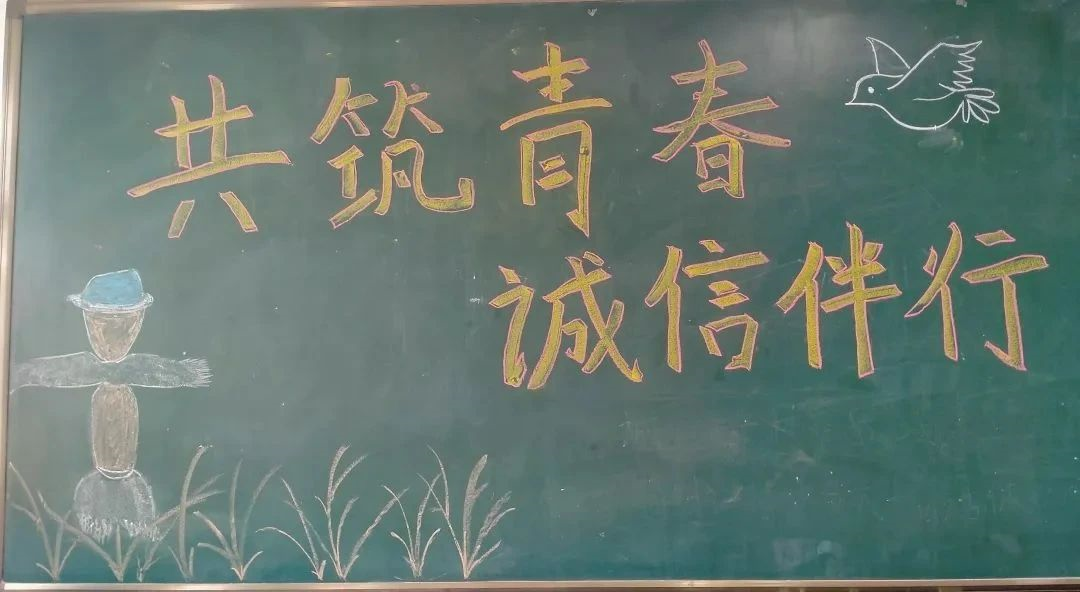 共筑青春
诚信伴行